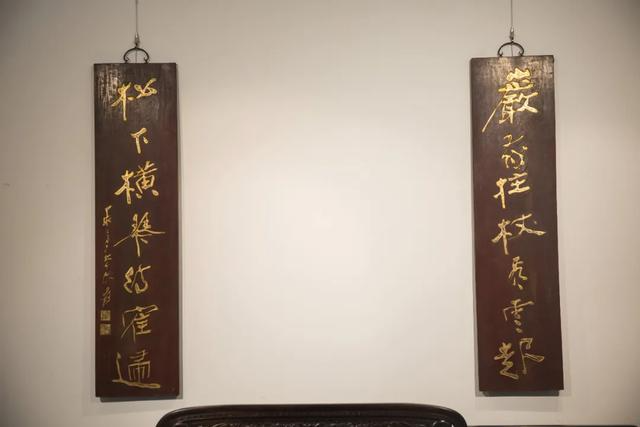 巖前拄杖看雲起
松下橫琴待隺